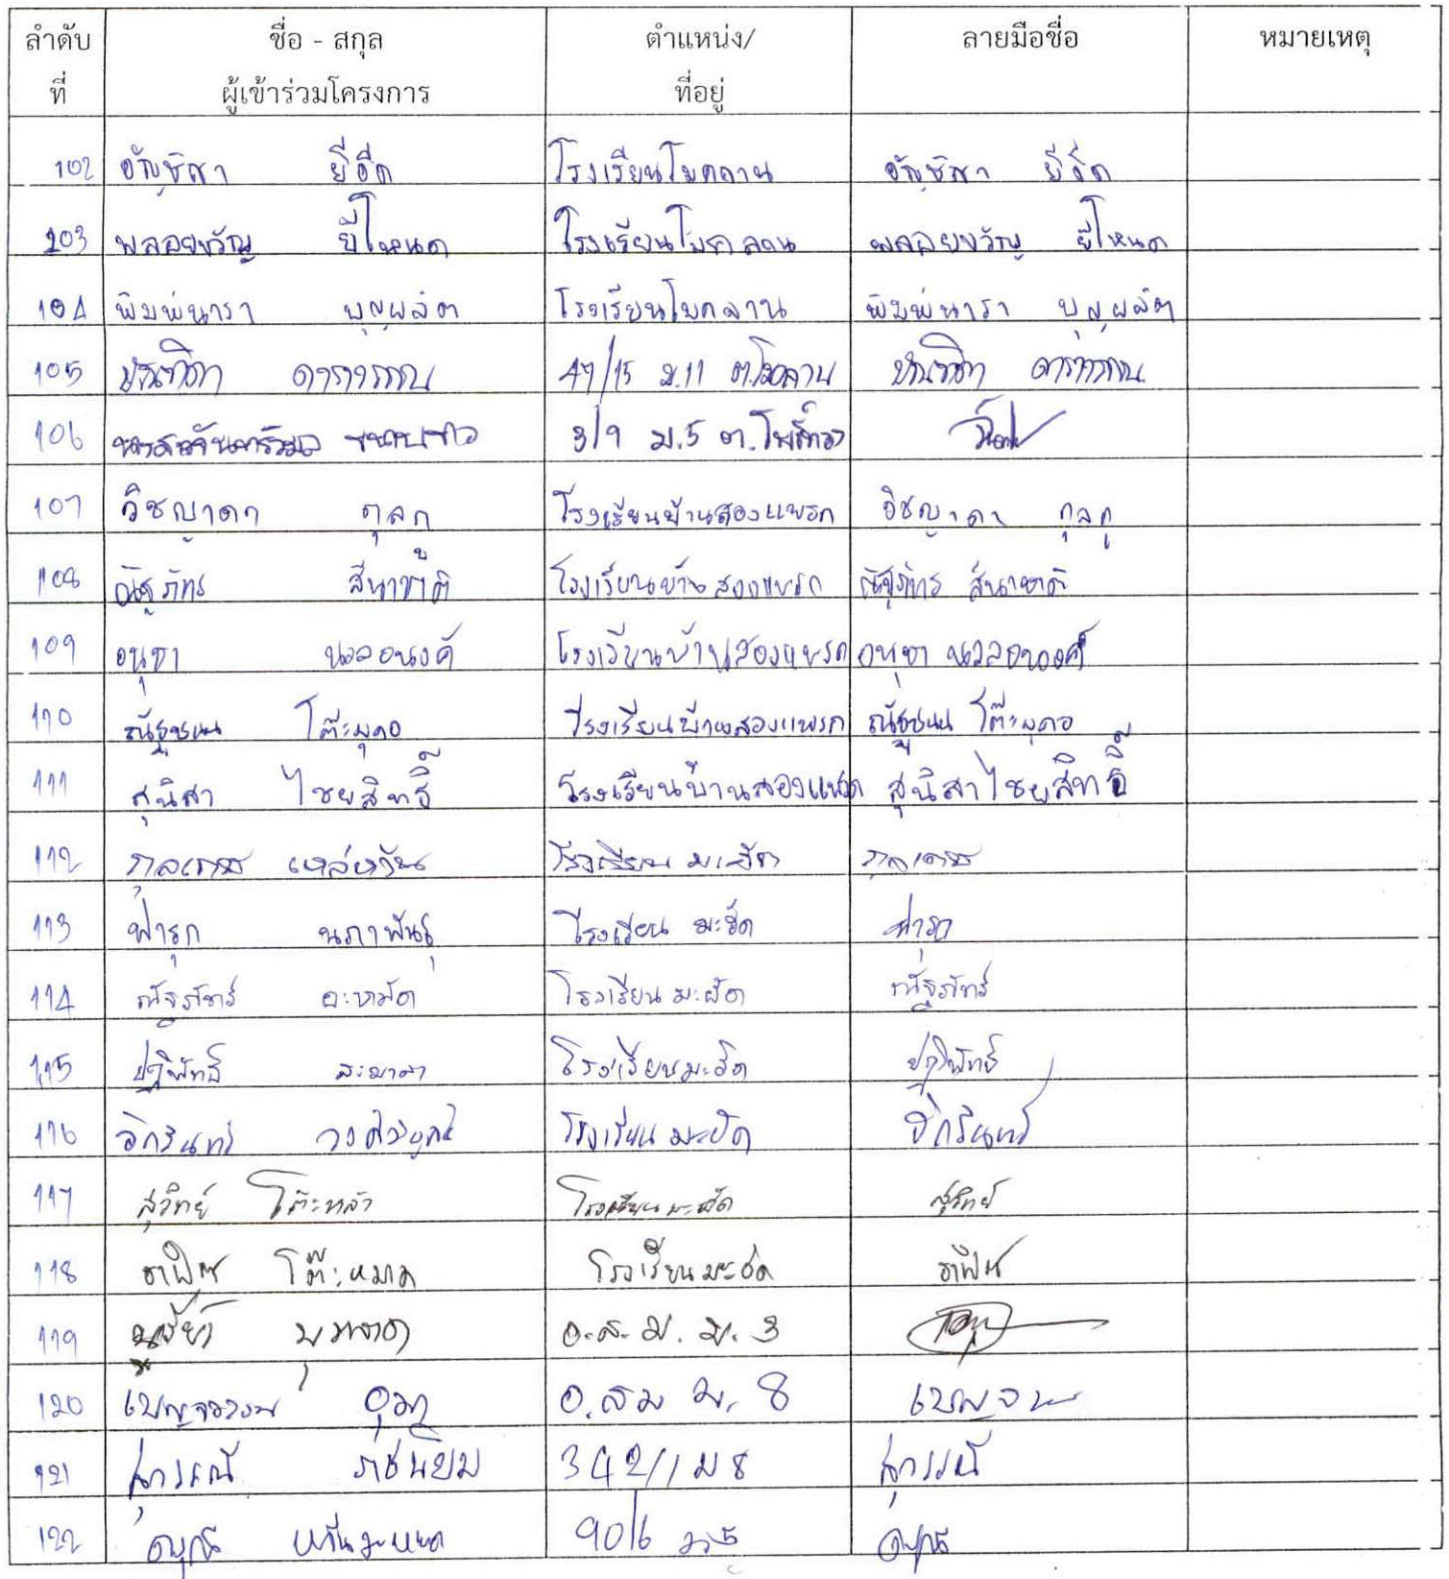 ลำดับที่ ชื่อ - สกุล ผู้เข้าร่วมโครงการ ตำแหน่ง/ที่อยู่ ลายมือชื่อ หมายเหตุ
102 อัญชิสา ยีอีด โรงเรียนโมคลาน อัญชิสา ยีอีด
103 พลอยขวัญ ยีโหนด โรงเรียนโมคลาน พลอยขวัญ ยีโหนด
104 พิมพ์นารา บุญผลัด โรงเรียนโมคลาน พิมพ์นารา บุญผลัด
105 ดาราวรรณ 47/15 ม.11 ต.โมคลาน
106 3/9 ม.5 ต.โพธิ์ทอง
107 วิชญาดา กุลกุ โรงเรียนบ้านสองแพรก วิชญาดา กุลกุ
108 ณัฐภัทร สีนาชาติ โรงเรียนบ้านสองแพรก ณัฐภัทร สีนาชาติ
109 อนุชา นวลอนงค์ โรงเรียนบ้านสองแพรก อนุชา นวลอนงค์
110 ณัฐชนน โต๊ะมุดอ โรงเรียนบ้านสองแพรก ณัฐชนน โต๊ะมุดอ
111 สุนิสา ไชยสิทธิ์ โรงเรียนบ้านสองแพรก สุนิสา ไชยสิทธิ์
112 เหล่หวัน โรงเรียน มะยัด
113 ฟารุก นภาพันธุ์ โรงเรียน มะยัด ฟารุก
114 ณัฐภัทร์ อะหมัด โรงเรียน มะยัด ณัฐภัทร์
115 ปฏิพัทธ์ โรงเรียนมะยัด ปฏิพัทธ์
116 อิกรินทร์ โรงเรียน มะยัด อิกรินทร์
117 สุวิทย์ โต๊ะหลัว โรงเรียน มะยัด สุวิทย์
118 อาฟิซ โต๊ะหมาด โรงเรียน มะยัด อาฟิซ
119 อ.ส.ม. ม. 3
120 เบญจวรรณ อุมา อ.สม ม. 8
121 สุวรรณี ราชนิยม 342/1 ม 8 สุวรรณี
122 90/6 ม 5